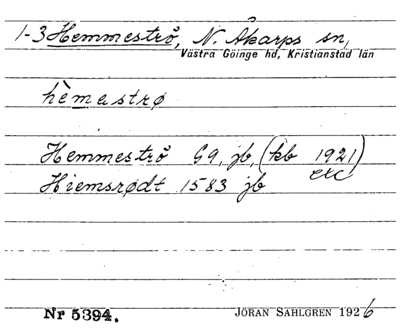 1-3 Hemmeströ, N. Åkarps sn,
Västra Göinge hd, Kristianstad län
hèmastrø
Hemmeströ G9, jb, (kb 1921)
etc
Hiemsrødt 1583 jb
Nr 5394. JÖRAN SAHLGREN 1926